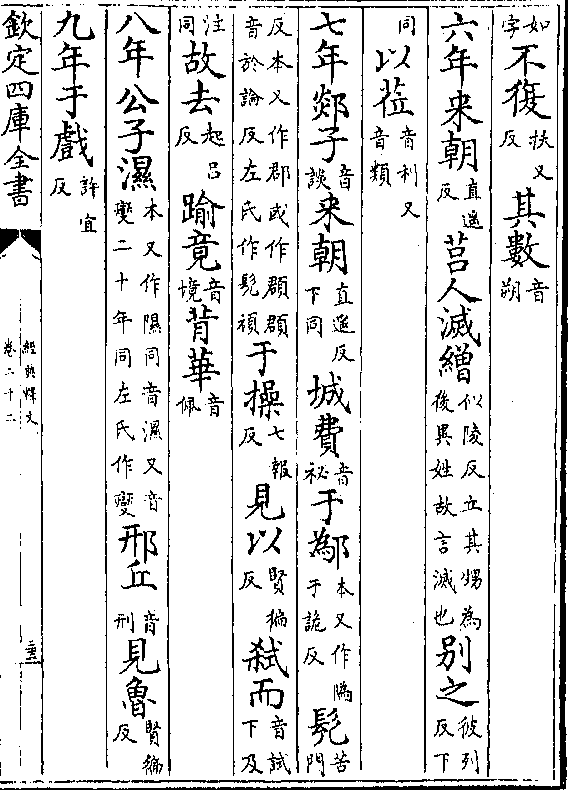 如字不復扶又反其數音朔
六年來朝直遥反莒人滅繒似陵反立其甥為後異姓故言滅也别之彼列反下
同以莅音利又音類
七年郯子音談来朝直遥反下同城費音祕于鄬本又作于詭反髠苦門
反本又作郡或作頵頵音於論反左氏作髠頑于操七報反見以賢徧反弑而音試下及
注同故去起吕反踰竟音境背華音佩
八年公子濕本又作隰同音濕又音燮二十年同左氏作燮邢丘音刑見魯賢徧反
九年于戲許宜反
欽定四庫全書
經典釋文
卷二十二